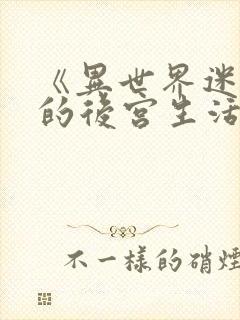 《異世界迷
的後宮生活
不一樣的硝煙